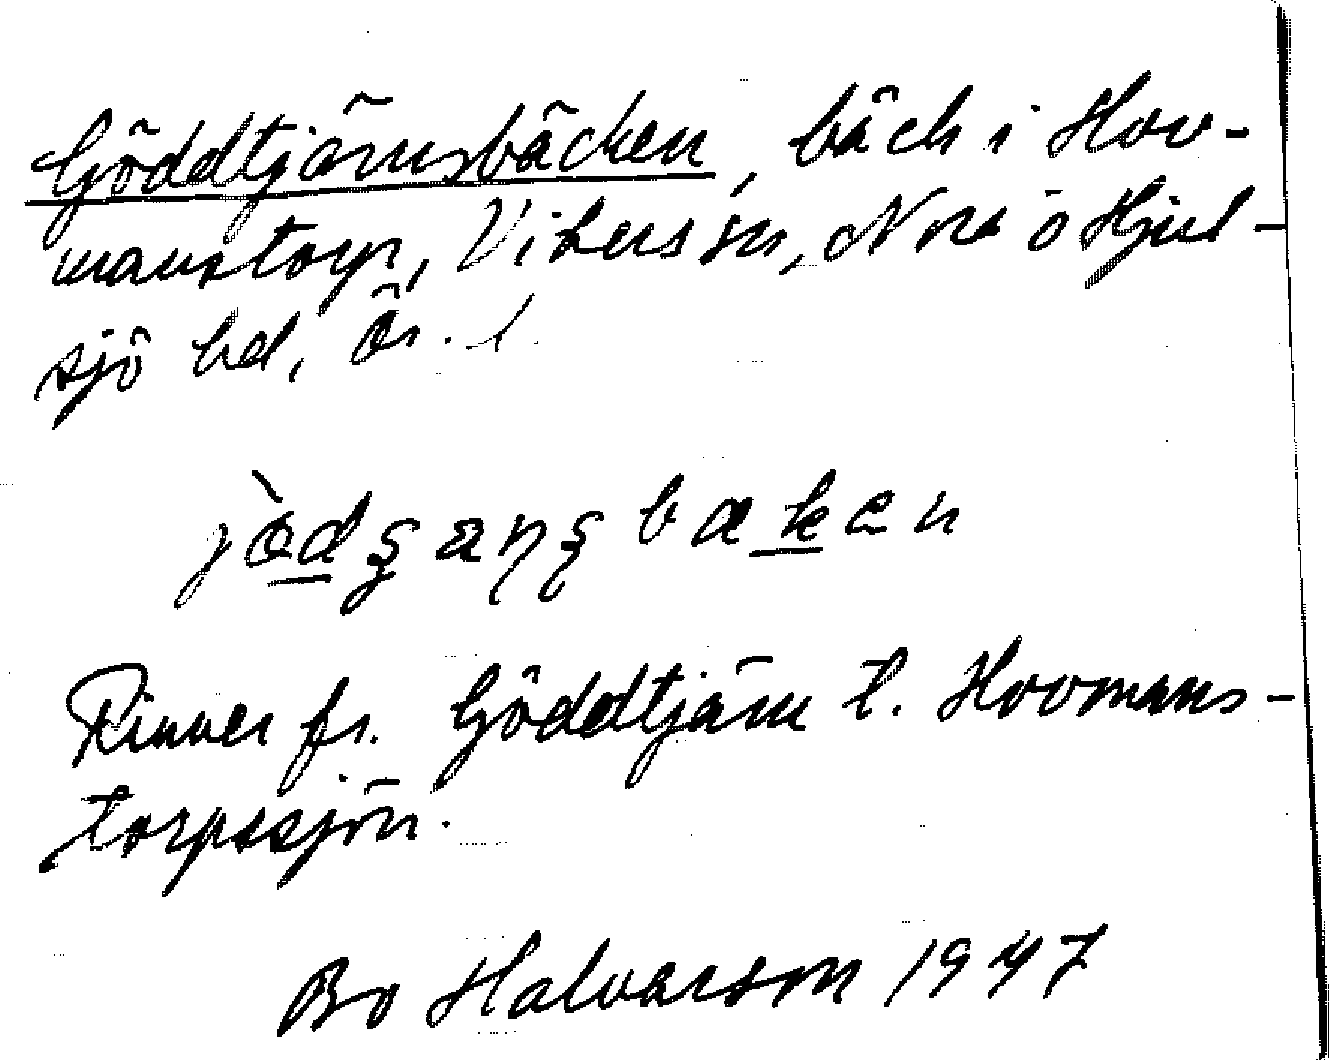 Göddtjärnsbäcken, bäck i Hov-
manstorp, Vikers sn, Nora o Hjul-
sjö bd, Ör. l.
Rinner fr. Göddtjärn t. Hovmans-
torpssjön.
Bo Halvarson 1947